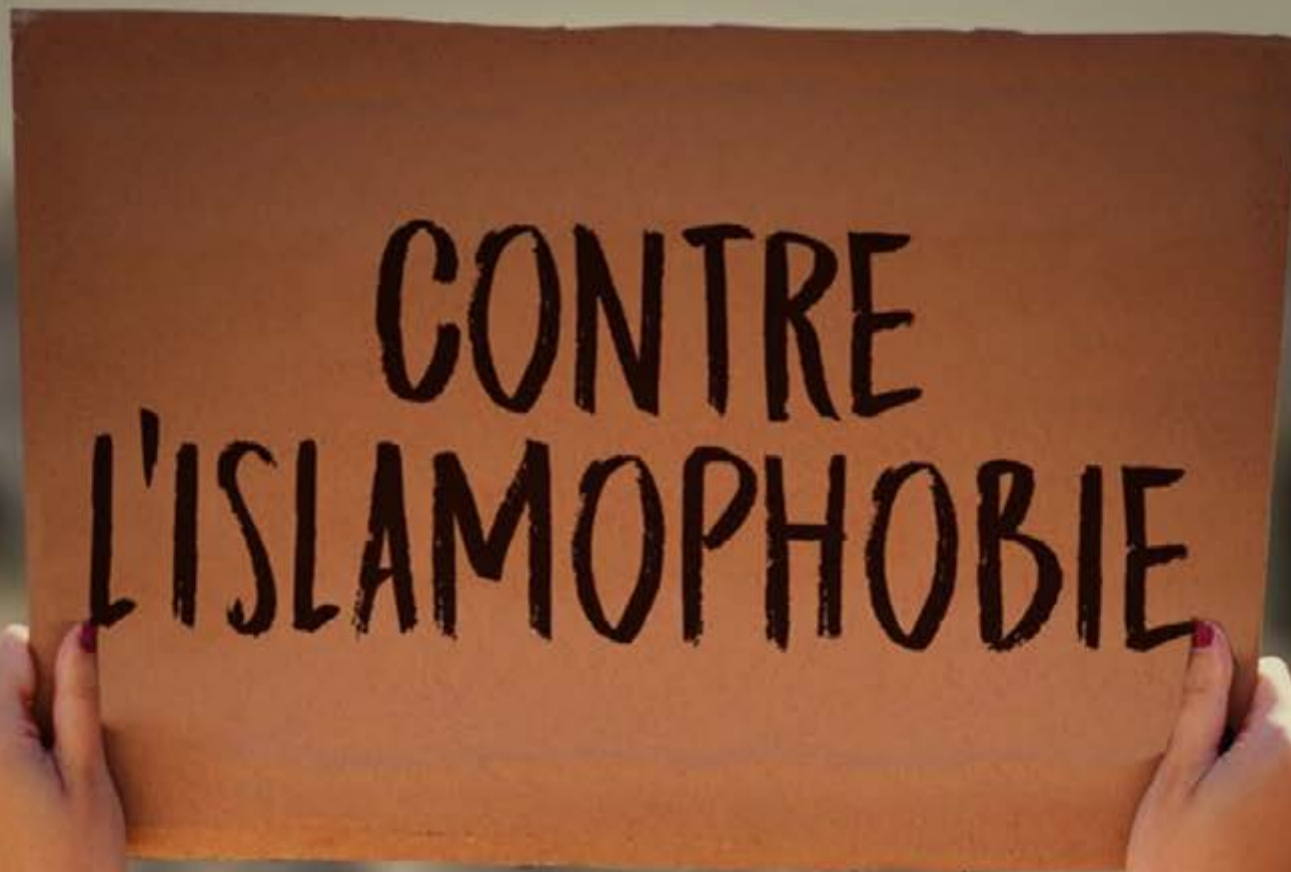 CONTRE
L'ISLAMOPHOBIE